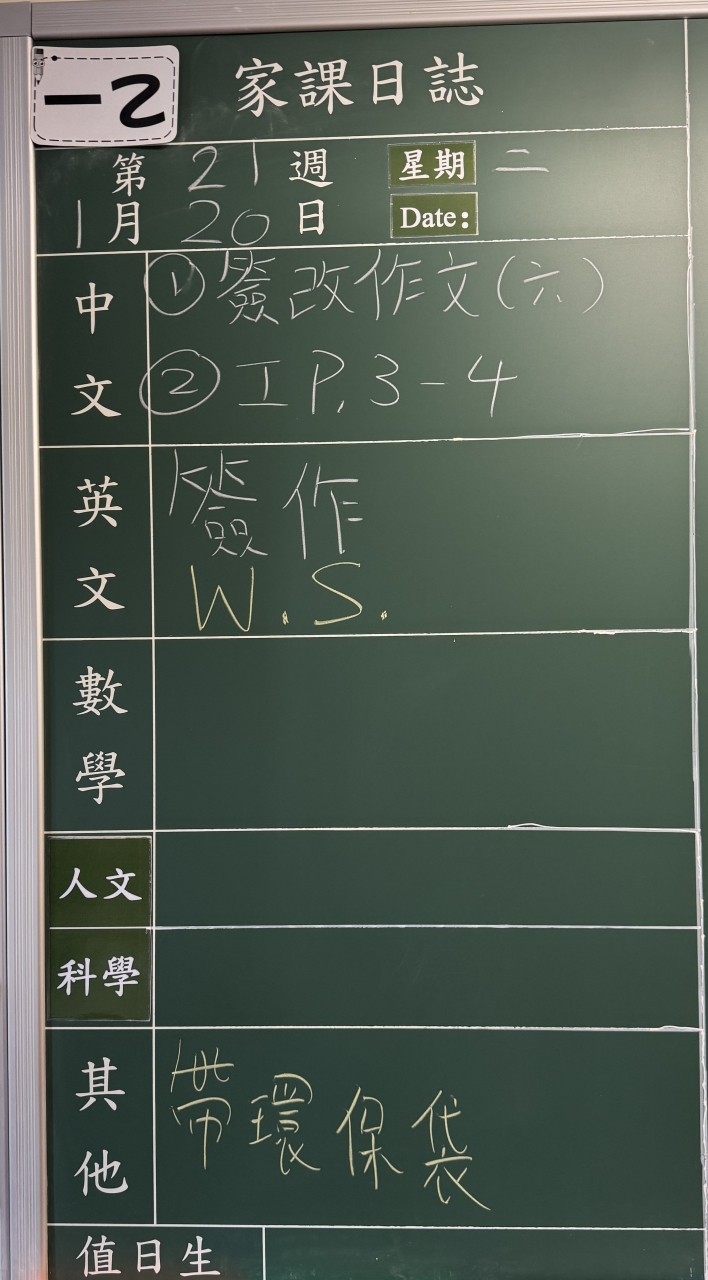 一2
家課日誌
第 21 週 星期 二
1月 20 日 Date:
中文
①簽改作文(六)
②工 P.3-4
英文
簽作
W.S.
數學
人文
科學
其他
帶環保袋
值日生